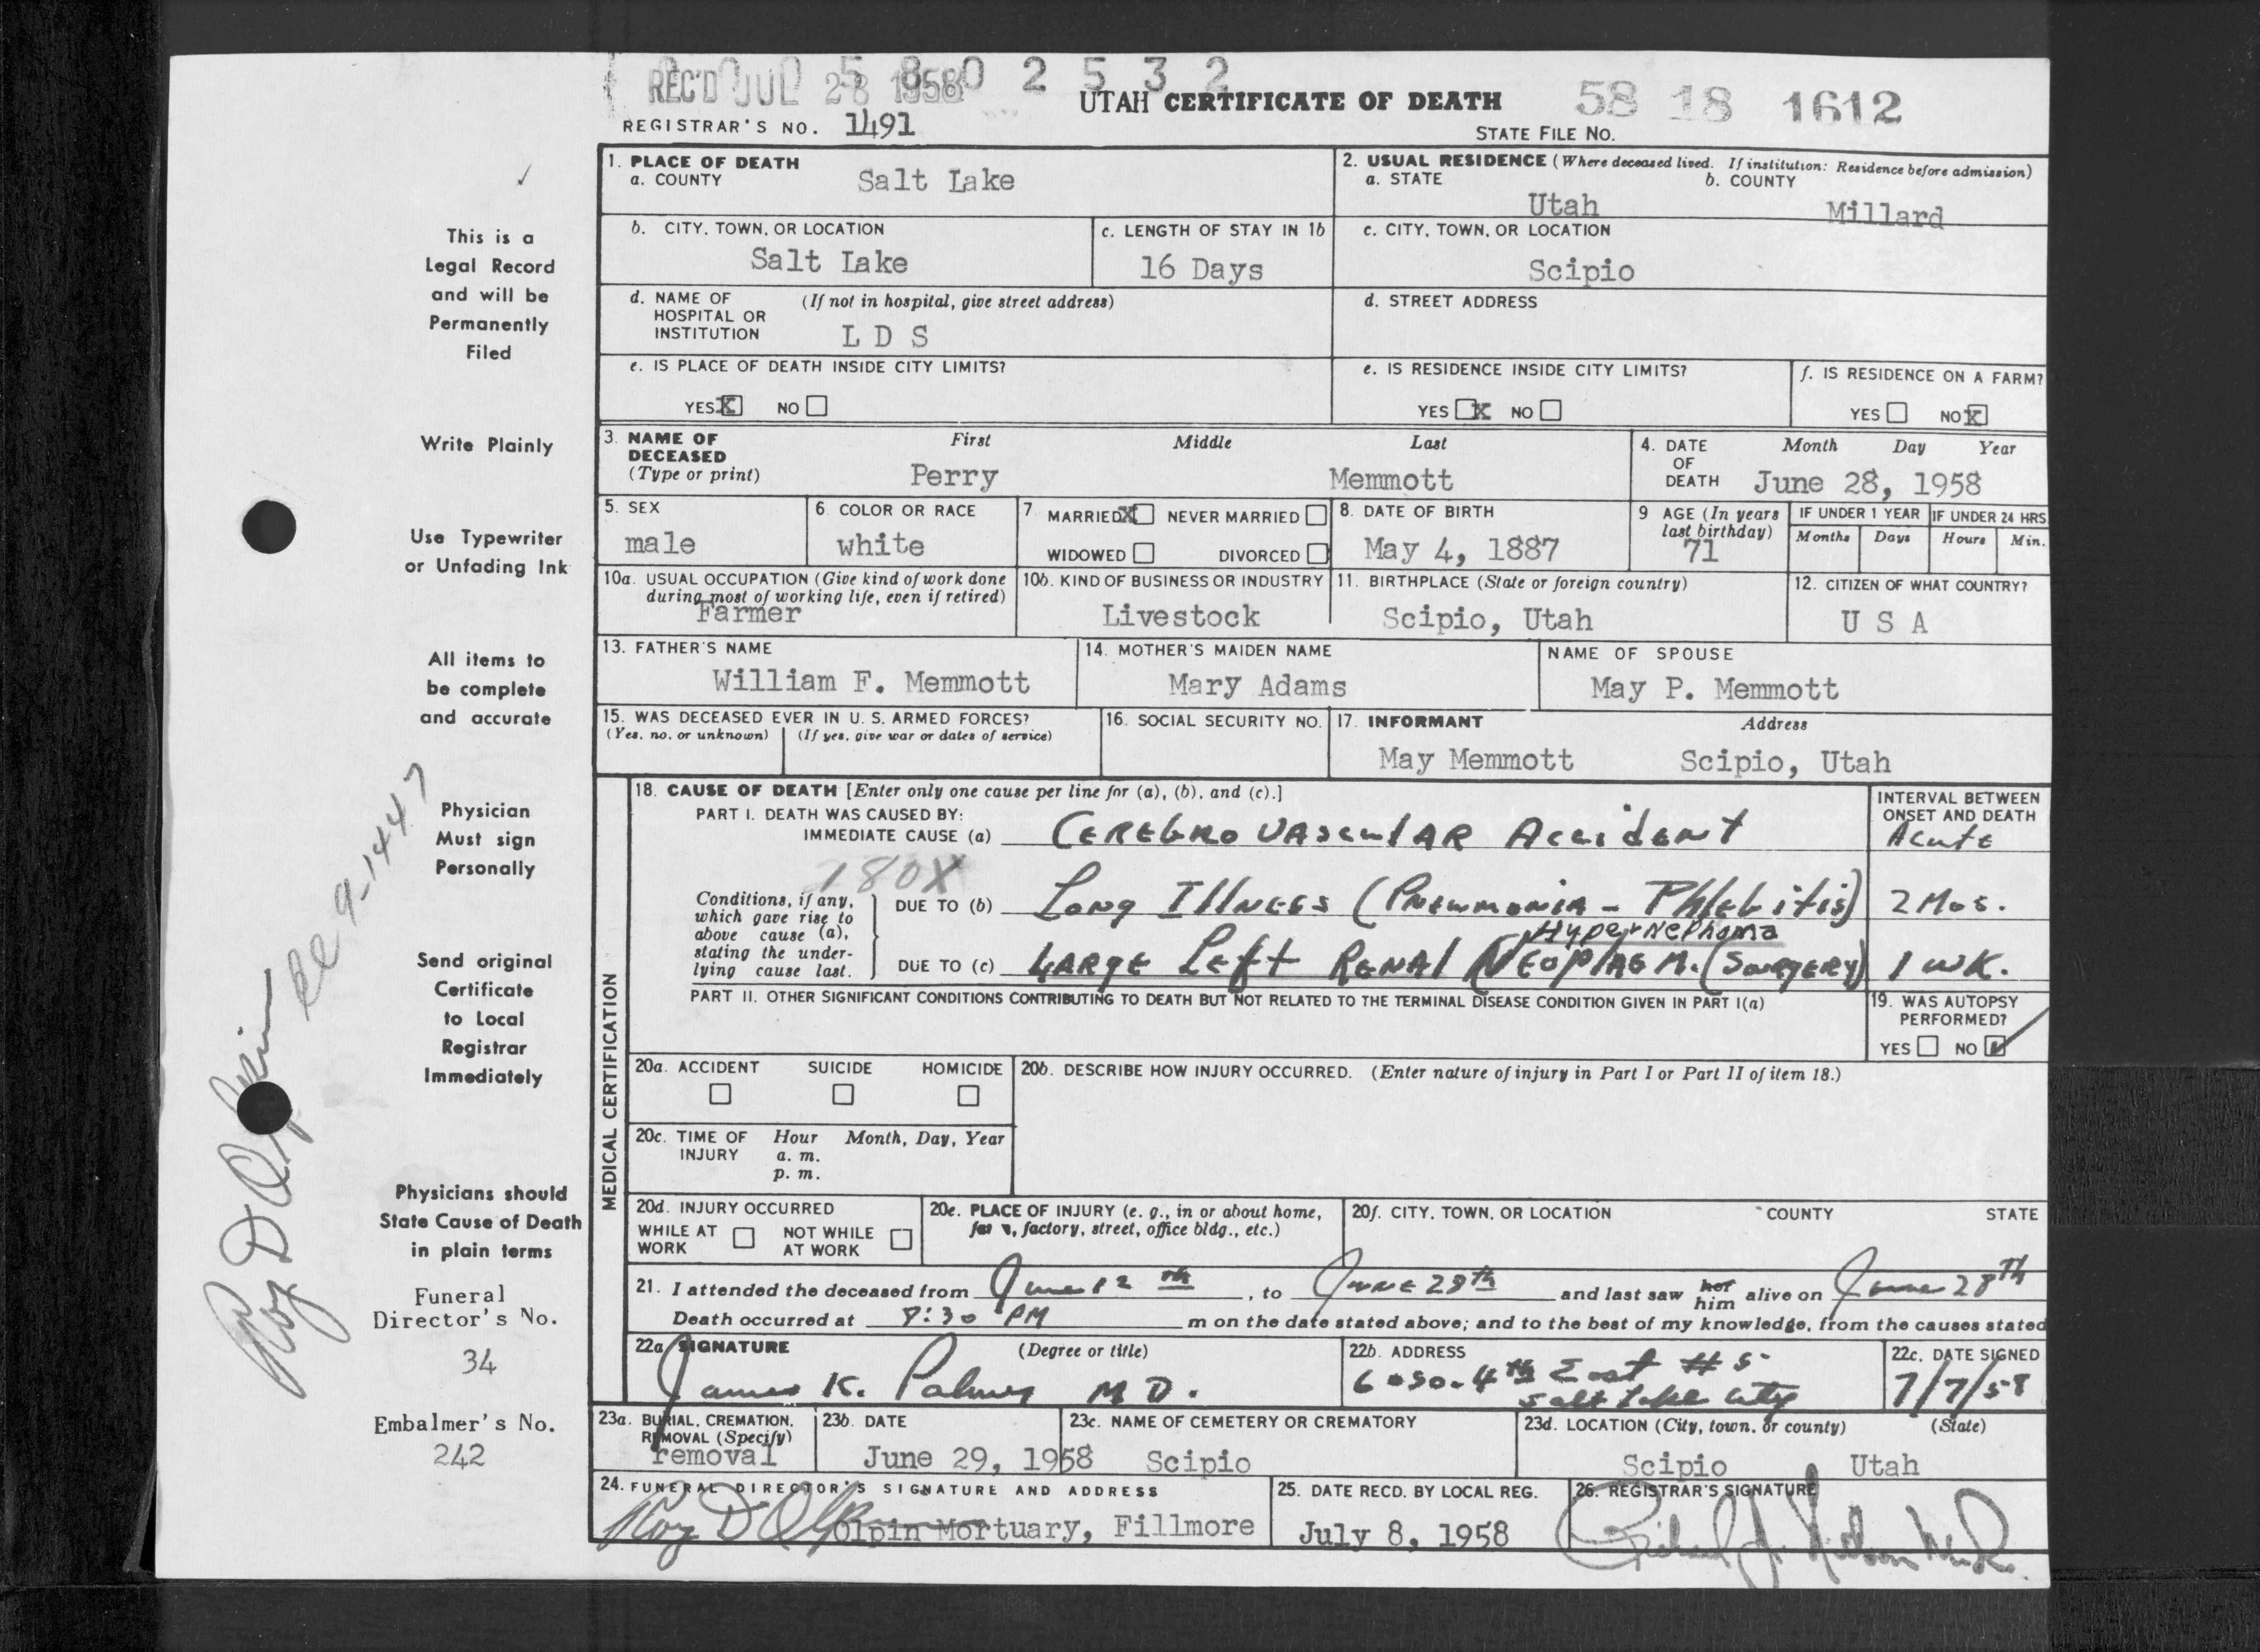 0 0 5 8 0 2 5 3 2
REC'D JUL 28 1958
UTAH CERTIFICATE OF DEATH
58 18 1612
REGISTRAR'S NO. 1491
STATE FILE NO.
1. PLACE OF DEATH
a. COUNTY Salt Lake
2. USUAL RESIDENCE (Where deceased lived. If institution: Residence before admission)
a. STATE Utah b. COUNTY Millard
b. CITY, TOWN, OR LOCATION Salt Lake
c. LENGTH OF STAY IN 1b 16 Days
c. CITY, TOWN, OR LOCATION Scipio
d. NAME OF HOSPITAL OR INSTITUTION (If not in hospital, give street address) L D S
d. STREET ADDRESS
e. IS PLACE OF DEATH INSIDE CITY LIMITS?
YES X NO
e. IS RESIDENCE INSIDE CITY LIMITS?
YES X NO
f. IS RESIDENCE ON A FARM?
YES NO X
3. NAME OF DECEASED (Type or print) First Middle Last
Perry Memmott
4. DATE OF DEATH Month Day Year
June 28, 1958
5. SEX male
6. COLOR OR RACE white
7. MARRIED X NEVER MARRIED
WIDOWED DIVORCED
8. DATE OF BIRTH May 4, 1887
9 AGE (In years last birthday) 71
IF UNDER 1 YEAR IF UNDER 24 HRS
Months Days Hours Min.
10a. USUAL OCCUPATION (Give kind of work done during most of working life, even if retired)
Farmer
10b. KIND OF BUSINESS OR INDUSTRY
Livestock
11. BIRTHPLACE (State or foreign country)
Scipio, Utah
12. CITIZEN OF WHAT COUNTRY?
U S A
13. FATHER'S NAME
William F. Memmott
14. MOTHER'S MAIDEN NAME
Mary Adams
NAME OF SPOUSE
May P. Memmott
15. WAS DECEASED EVER IN U. S. ARMED FORCES?
(Yes, no, or unknown) (If yes, give war or dates of service)
16. SOCIAL SECURITY NO.
17. INFORMANT Address
May Memmott Scipio, Utah
MEDICAL CERTIFICATION
18. CAUSE OF DEATH [Enter only one cause per line for (a), (b), and (c).]
PART I. DEATH WAS CAUSED BY:
IMMEDIATE CAUSE (a) Cerebro Vascular Accident
INTERVAL BETWEEN ONSET AND DEATH
Acute
180X
Conditions, if any, which gave rise to above cause (a), stating the underlying cause last.
DUE TO (b) Long Illness (Pneumonia - Phlebitis) 2 Mos.
Hypernephoma
DUE TO (c) Large Left Renal Neoplasm. (Surgery) 1 wk.
PART II. OTHER SIGNIFICANT CONDITIONS CONTRIBUTING TO DEATH BUT NOT RELATED TO THE TERMINAL DISEASE CONDITION GIVEN IN PART I(a)
19. WAS AUTOPSY PERFORMED?
YES NO ✓
20a. ACCIDENT SUICIDE HOMICIDE
20b. DESCRIBE HOW INJURY OCCURRED. (Enter nature of injury in Part I or Part II of item 18.)
20c. TIME OF INJURY Hour Month, Day, Year
a. m.
p. m.
20d. INJURY OCCURRED
WHILE AT WORK NOT WHILE AT WORK
20e. PLACE OF INJURY (e. g., in or about home, farm, factory, street, office bldg., etc.)
20f. CITY, TOWN, OR LOCATION COUNTY STATE
21. I attended the deceased from June 12th, to June 28th and last saw her him alive on June 28th
Death occurred at 8:30 PM m on the date stated above; and to the best of my knowledge, from the causes stated
22a. SIGNATURE (Degree or title)
James K. Palmer M D.
22b. ADDRESS
6 0 So. 4th East # 5
Salt Lake City
22c. DATE SIGNED
7/7/58
23a. BURIAL, CREMATION, REMOVAL (Specify)
removal
23b. DATE
June 29, 1958
23c. NAME OF CEMETERY OR CREMATORY
Scipio
23d. LOCATION (City, town, or county) (State)
Scipio Utah
24. FUNERAL DIRECTOR'S SIGNATURE AND ADDRESS
Roy D Olpin Olpin Mortuary, Fillmore
25. DATE RECD. BY LOCAL REG.
July 8, 1958
26. REGISTRAR'S SIGNATURE
This is a
Legal Record
and will be
Permanently
Filed
Write Plainly
Use Typewriter
or Unfading Ink
All items to
be complete
and accurate
Physician
Must sign
Personally
Send original
Certificate
to Local
Registrar
Immediately
Physicians should
State Cause of Death
in plain terms
Funeral
Director's No.
34
Embalmer's No.
242
Roy D Olpin
9-1447